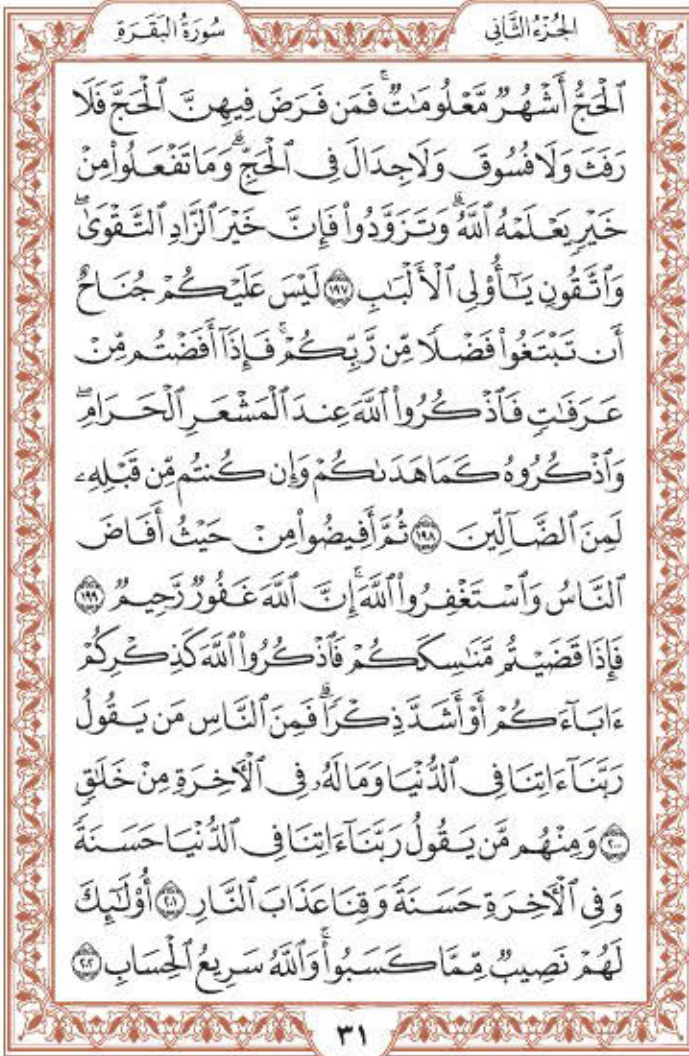 الجُزْءُ الثَّانِي
سُورَةُ الْبَقَرَةِ
ٱلْحَجُّ أَشْهُرٌ مَّعْلُومَٰتٌ ۚ فَمَن فَرَضَ فِيهِنَّ ٱلْحَجَّ فَلَا
رَفَثَ وَلَا فُسُوقَ وَلَا جِدَالَ فِى ٱلْحَجِّ ۗ وَمَا تَفْعَلُوا۟ مِنْ
خَيْرٍ يَعْلَمْهُ ٱللَّهُ ۗ وَتَزَوَّدُوا۟ فَإِنَّ خَيْرَ ٱلزَّادِ ٱلتَّقْوَىٰ ۖ
وَٱتَّقُونِ يَٰٓأُو۟لِى ٱلْأَلْبَٰبِ ۝١٩٧ لَيْسَ عَلَيْكُمْ جُنَاحٌ
أَن تَبْتَغُوا۟ فَضْلًا مِّن رَّبِّكُمْ ۚ فَإِذَآ أَفَضْتُم مِّنْ
عَرَفَٰتٍ فَٱذْكُرُوا۟ ٱللَّهَ عِندَ ٱلْمَشْعَرِ ٱلْحَرَامِ ۖ
وَٱذْكُرُوهُ كَمَا هَدَىٰكُمْ وَإِن كُنتُم مِّن قَبْلِهِۦ
لَمِنَ ٱلضَّآلِّينَ ۝١٩٨ ثُمَّ أَفِيضُوا۟ مِنْ حَيْثُ أَفَاضَ
ٱلنَّاسُ وَٱسْتَغْفِرُوا۟ ٱللَّهَ ۚ إِنَّ ٱللَّهَ غَفُورٌ رَّحِيمٌ ۝١٩٩
فَإِذَا قَضَيْتُم مَّنَٰسِكَكُمْ فَٱذْكُرُوا۟ ٱللَّهَ كَذِكْرِكُمْ
ءَابَآءَكُمْ أَوْ أَشَدَّ ذِكْرًا ۗ فَمِنَ ٱلنَّاسِ مَن يَقُولُ
رَبَّنَآ ءَاتِنَا فِى ٱلدُّنْيَا وَمَا لَهُۥ فِى ٱلْءَاخِرَةِ مِنْ خَلَٰقٍ
۝٢٠٠ وَمِنْهُم مَّن يَقُولُ رَبَّنَآ ءَاتِنَا فِى ٱلدُّنْيَا حَسَنَةً
وَفِى ٱلْءَاخِرَةِ حَسَنَةً وَقِنَا عَذَابَ ٱلنَّارِ ۝٢٠١ أُو۟لَٰٓئِكَ
لَهُمْ نَصِيبٌ مِّمَّا كَسَبُوا۟ ۚ وَٱللَّهُ سَرِيعُ ٱلْحِسَابِ ۝٢٠٢
٣١